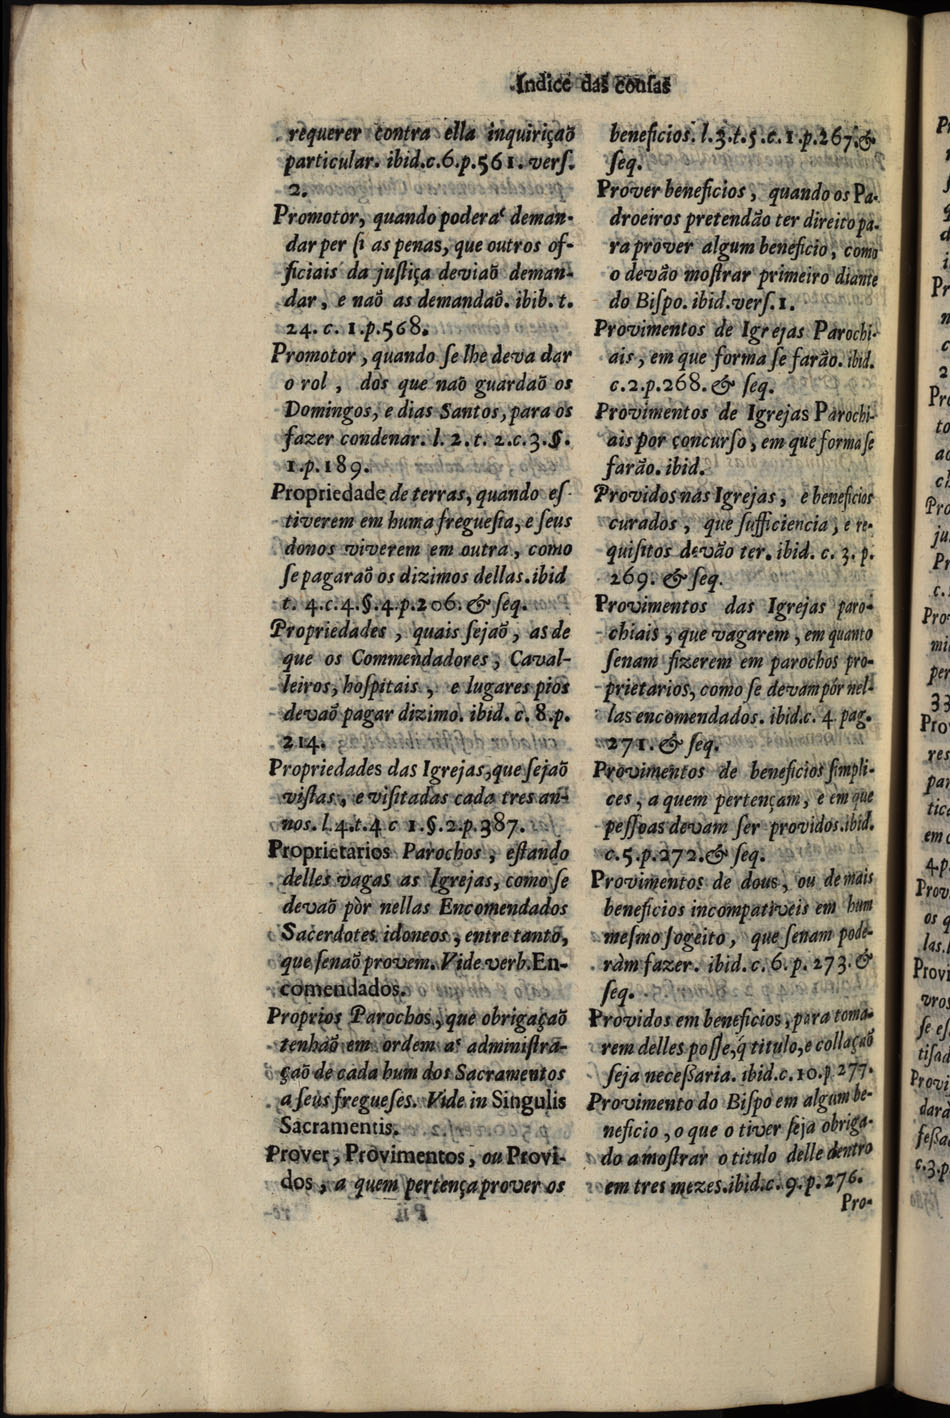 Indice das cousas
requerer contra ella inquiriçaõ
particular. ibid.c.6.p.561. verſ.
2.
Promotor, quando poderà deman-
dar per ſi as penas, que outros of-
ficiais da juſtiça deviaõ deman-
dar, e naõ as demandaõ. ibib. t.
24. c. 1.p.568.
Promotor, quando ſe lhe deva dar
o rol, dos que naõ guardaõ os
Domingos, e dias Santos, para os
fazer condenar. l. 2. t. 2.c.3.§.
1.p.189.
Propriedade de terras, quando eſ-
tiverem em huma fregueſia, e ſeus
donos viverem em outra, como
ſe pagaraõ os dizimos dellas. ibid
t. 4.c.4.§.4.p.206. & ſeq.
Propriedades, quais ſejaõ, as de
que os Commendadores, Caval-
leiros, hoſpitais, e lugares pios
devaõ pagar dizimo. ibid. c. 8.p.
214.
Propriedades das Igrejas, que ſejaõ
viſtas, e viſitadas cada tres an-
nos. l.4.t.4 c 1.§.2.p.387.
Proprietarios Parochos, eſtando
delles vagas as Igrejas, como ſe
devaõ pòr nellas Encomendados
Sacerdotes idoneos, entre tanto,
que ſenaõ provem. Vide verb. En-
comendados.
Proprios Parochos, que obrigaçaõ
tenhaõ em ordem à adminiſtra-
çaõ de cada hum dos Sacramentos
a ſeus fregueſes. Vide in Singulis
Sacramentis.
Prover, Provimentos, ou Provi-
dos, a quem pertença prover os
beneficios. l.3.t.5.c.1.p.267.&
ſeq.
Prover beneficios, quando os Pa-
droeiros pretendão ter direito pa-
ra prover algum beneficio, como
o devão moſtrar primeiro diante
do Biſpo. ibid. verſ.1.
Provimentos de Igrejas Parochi-
ais, em que forma ſe farão. ibid.
c.2.p.268. & ſeq.
Provimentos de Igrejas Parochi-
ais por concurſo, em que forma ſe
farão. ibid.
Providos nas Igrejas, e beneficios
curados, que ſufficiencia, e re-
quiſitos devão ter. ibid. c. 3. p.
269. & ſeq.
Provimentos das Igrejas paro-
chiais, que vagarem, em quanto
ſenam fizerem em parochos pro-
prietarios, como ſe devam pór nel-
las encomendados. ibid.c. 4 pag.
271. & ſeq.
Provimentos de beneficios ſimpli-
ces, a quem pertençam, e em que
peſſoas devam ſer providos. ibid.
c.5.p.272. & ſeq.
Provimentos de dous, ou de mais
beneficios incompativeis em hum
meſmo ſogeito, que ſenam pode-
ràm fazer. ibid. c. 6. p. 273. &
ſeq.
Providos em beneficios, para toma-
rem delles poſſe, q̃ titulo, e collaçaõ
ſeja neceßaria. ibid.c.10.p 277.
Provimento do Biſpo em algum be-
neficio, o que o tiver ſeja obriga-
do a moſtrar o titulo delle dentro
em tres mezes. ibid.c. 9. p. 276.
Pro-